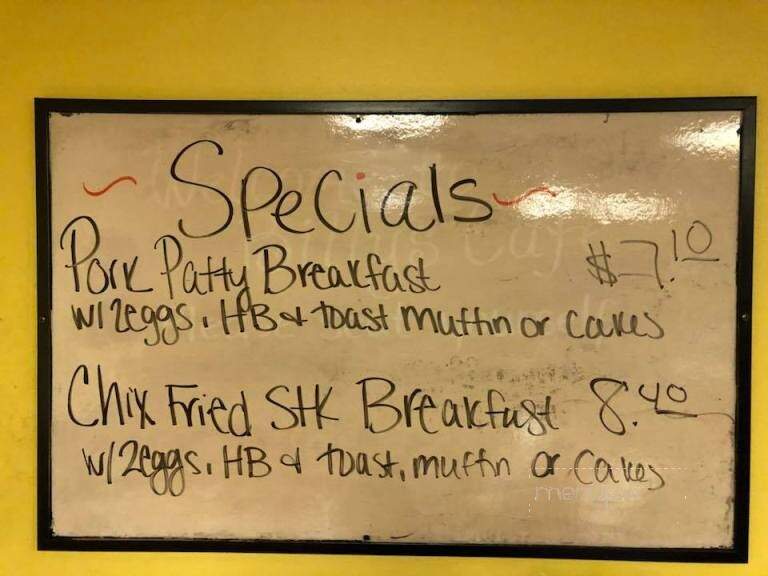 ~ Specials ~
Pork Patty Breakfast $7.10
w/ 2eggs, HB & toast muffin or cakes
Chix Fried Stk Breakfast 8.40
w/2eggs, HB & toast, muffin or cakes